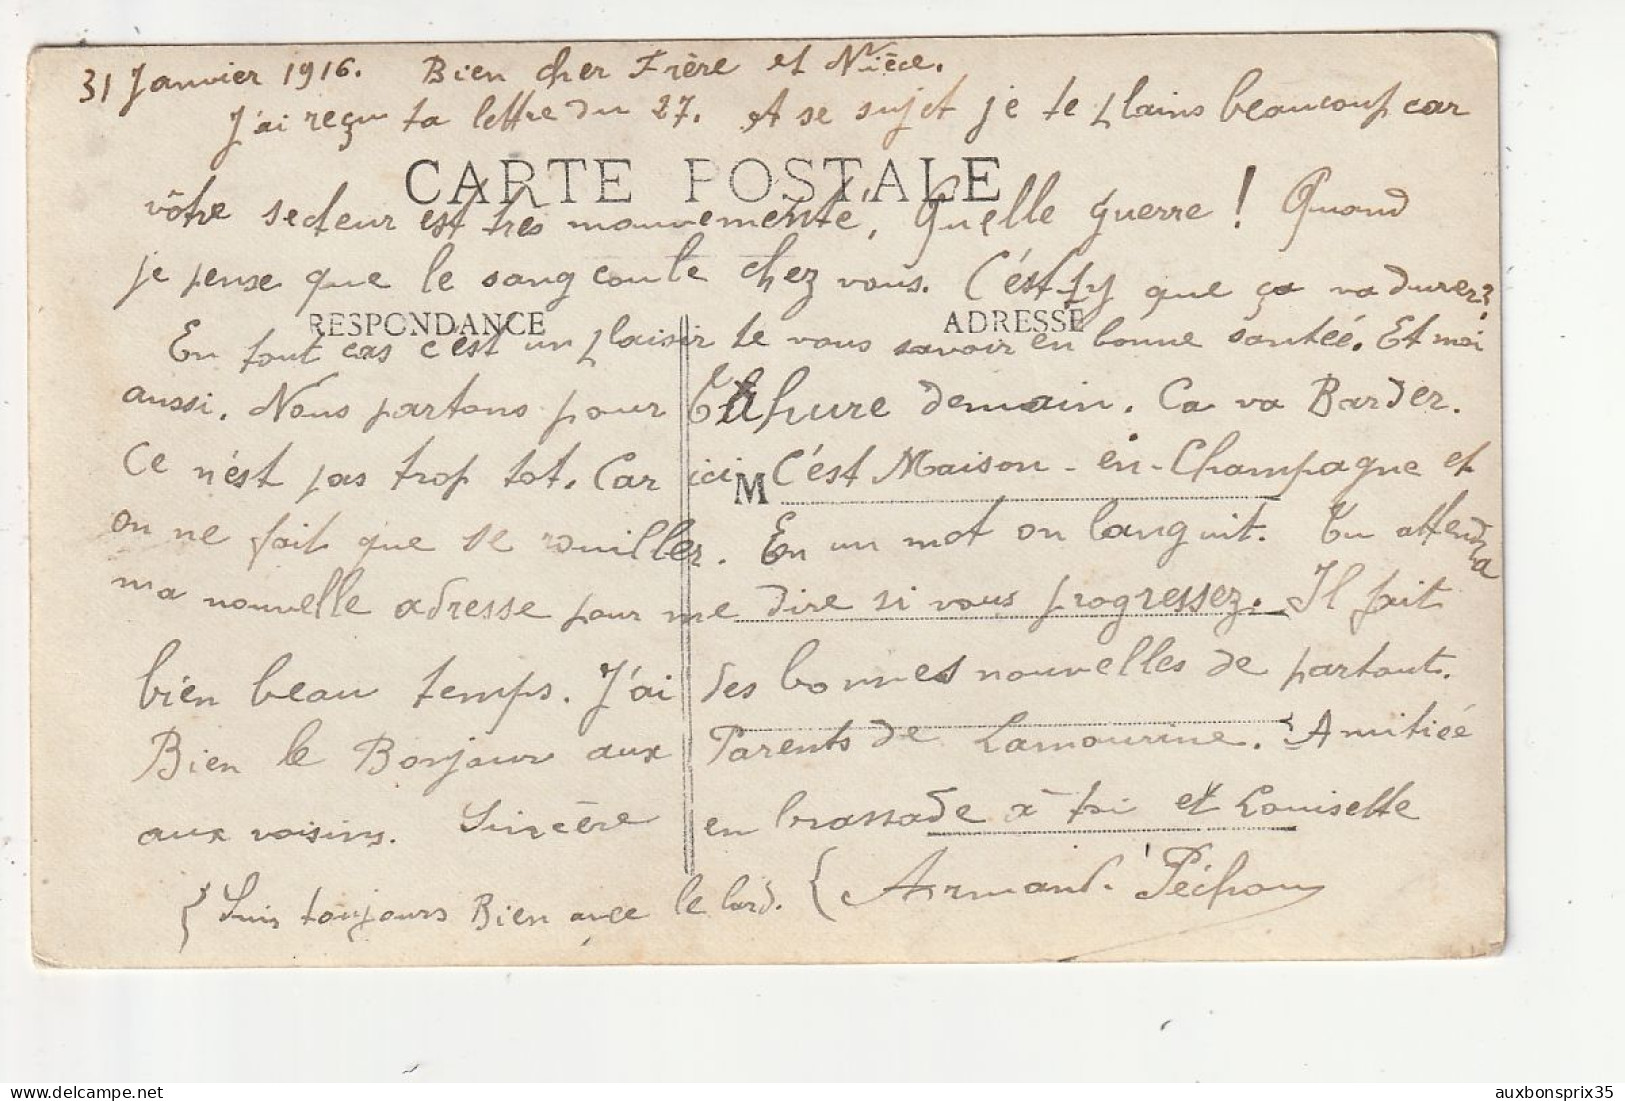 31 Janvier 1916. Bien cher Frère et Nièce.
J'ai reçu ta lettre du 27. A se sujet je te plains beaucoup car
CARTE POSTALE
vôtre secteur est très mouvementé, Quelle guerre ! Quand
je pense que le sang coule chez vous. C'est fy que ça va durer?
RESPONDANCE ADRESSE
En tout cas c'est un plaisir te vous savoir en bonne santéé. Et moi
aussi. Nous partons pour Tahure demain. Ca va Barder.
Ce n'est pas trop tot. Car ici C'est Maison-en-Champagne et
M
on ne fait que se rouiller. En un mot on languit. Tu attendra
ma nouvelle adresse pour me dire si vous progressez. Il fait
bien beau temps. J'ai des bonnes nouvelles de partout.
Bien le Bonjour aux Parents de Lamourine. Amitiéé
aux voisins. Sincère en brassade à toi et Louisette
Suis toujours Bien avec le lard. Armand. Péchoux
auxbonsprix35